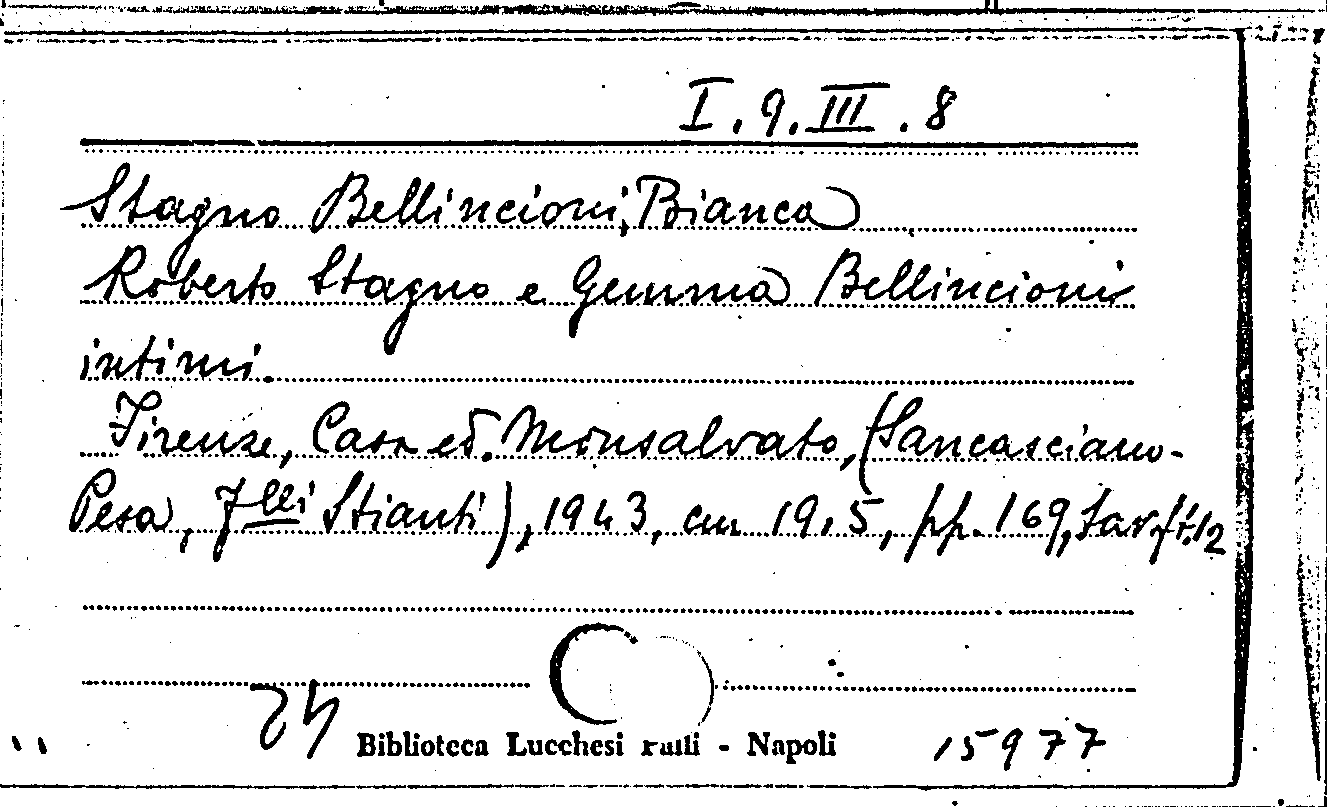 I.9.III.8
Stagno Bellincioni, Bianca
Roberto Stagno e Gemma Bellincioni
intimi.
Firenze, Casa ed. Monsalvato, (Sancasciano-
Pesa, Flli Stianti), 1943, cm 19,5, pp. 169, tav. f.t. 12
Biblioteca Lucchesi Palli - Napoli
15977